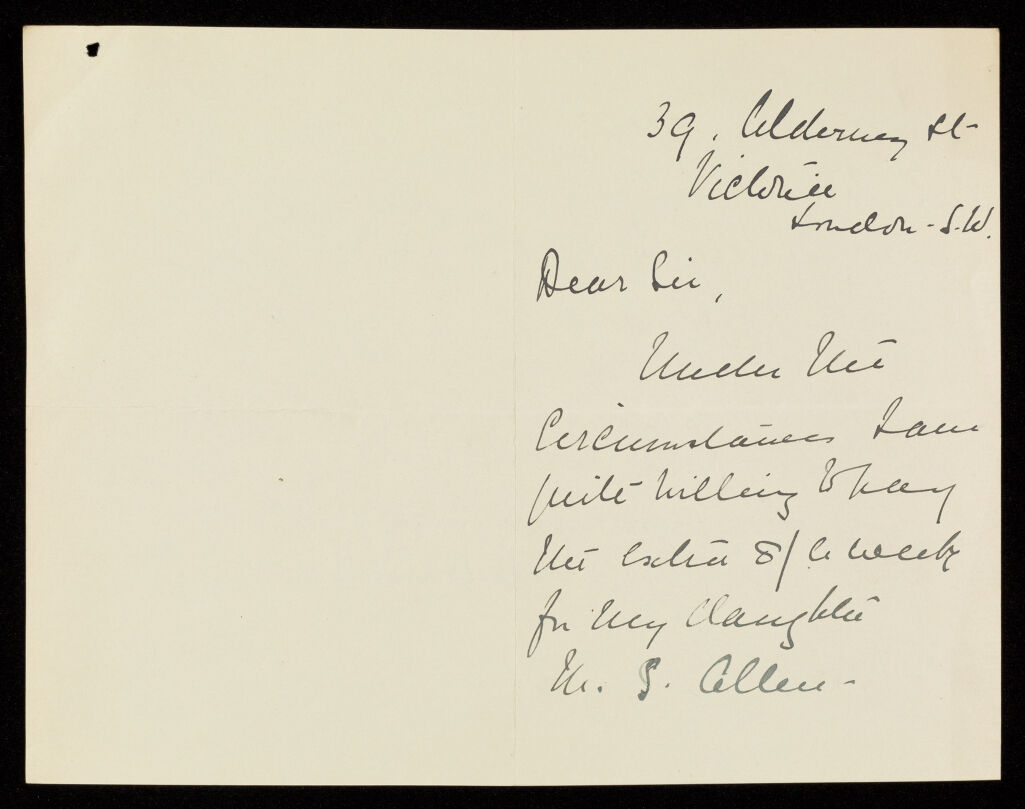 39, Alderney St
Victoria
London - S.W.
Dear Sir,
Under the
Circumstances I am
quite willing to pay
the extra 8/ a week
for my daughter
M. S. Allen -